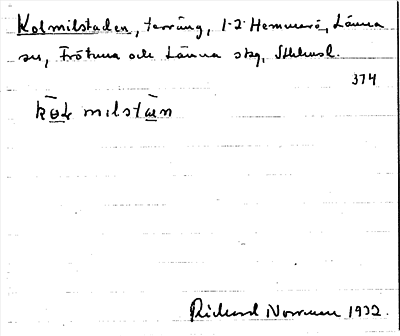 Kolmilstaden, terräng, 1-2 Hemmarö, Länna
sn, Frötuna och Länna skg, Sthlmsl.
374
kol milstan
Rickard Norrman 1932.